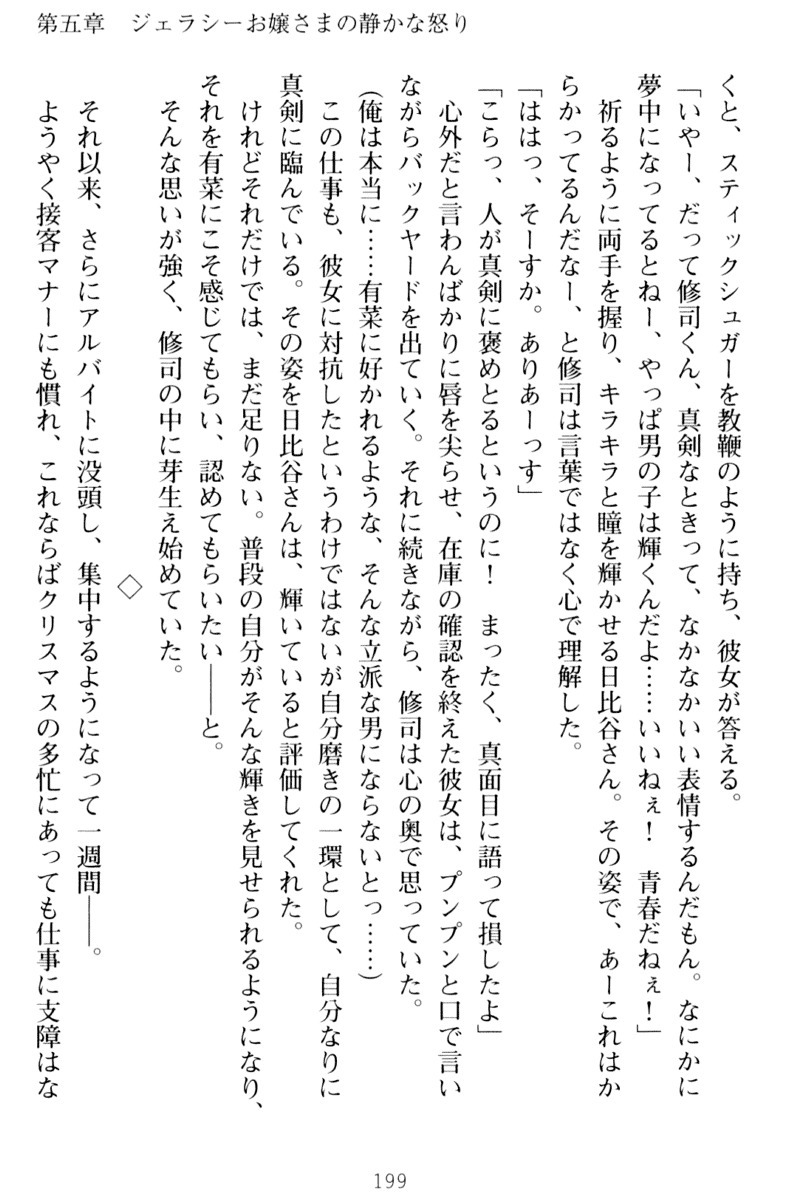 第五章　ジェラシーお嬢さまの静かな怒り
くと、スティックシュガーを教鞭のように持ち、彼女が答える。
「いやー、だって修司くん、真剣なときって、なかなかいい表情するんだもん。なにかに
夢中になってるとねー、やっぱ男の子は輝くんだよ……いいねぇ！　青春だねぇ！」
　祈るように両手を握り、キラキラと瞳を輝かせる日比谷さん。その姿で、あーこれはか
らかってるんだなー、と修司は言葉ではなく心で理解した。
「ははっ、そーすか。ありあーっす」
「こらっ、人が真剣に褒めとるというのに！　まったく、真面目に語って損したよ」
　心外だと言わんばかりに唇を尖らせ、在庫の確認を終えた彼女は、プンプンと口で言い
ながらバックヤードを出ていく。それに続きながら、修司は心の奥で思っていた。
（俺は本当に……有菜に好かれるような、そんな立派な男にならないとっ……）
　この仕事も、彼女に対抗したというわけではないが自分磨きの一環として、自分なりに
真剣に臨んでいる。その姿を日比谷さんは、輝いていると評価してくれた。
　けれどそれだけでは、まだ足りない。普段の自分がそんな輝きを見せられるようになり、
それを有菜にこそ感じてもらい、認めてもらいたい――と。
　そんな思いが強く、修司の中に芽生え始めていた。
◇
　それ以来、さらにアルバイトに没頭し、集中するようになって一週間――。
　ようやく接客マナーにも慣れ、これならばクリスマスの多忙にあっても仕事に支障はな
199